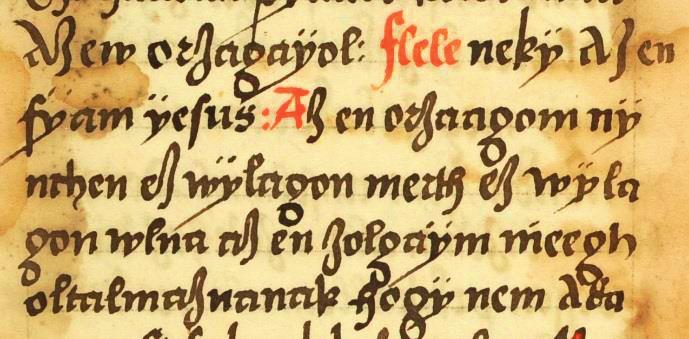 Az ew orzagayol: felele neky Az en
fyam yesus: Az en orzaagom ny
nchen ez wylagon merth ez wyla
gon wlna az en zolgaym meegh
oltalmaznanak hogy nem ada